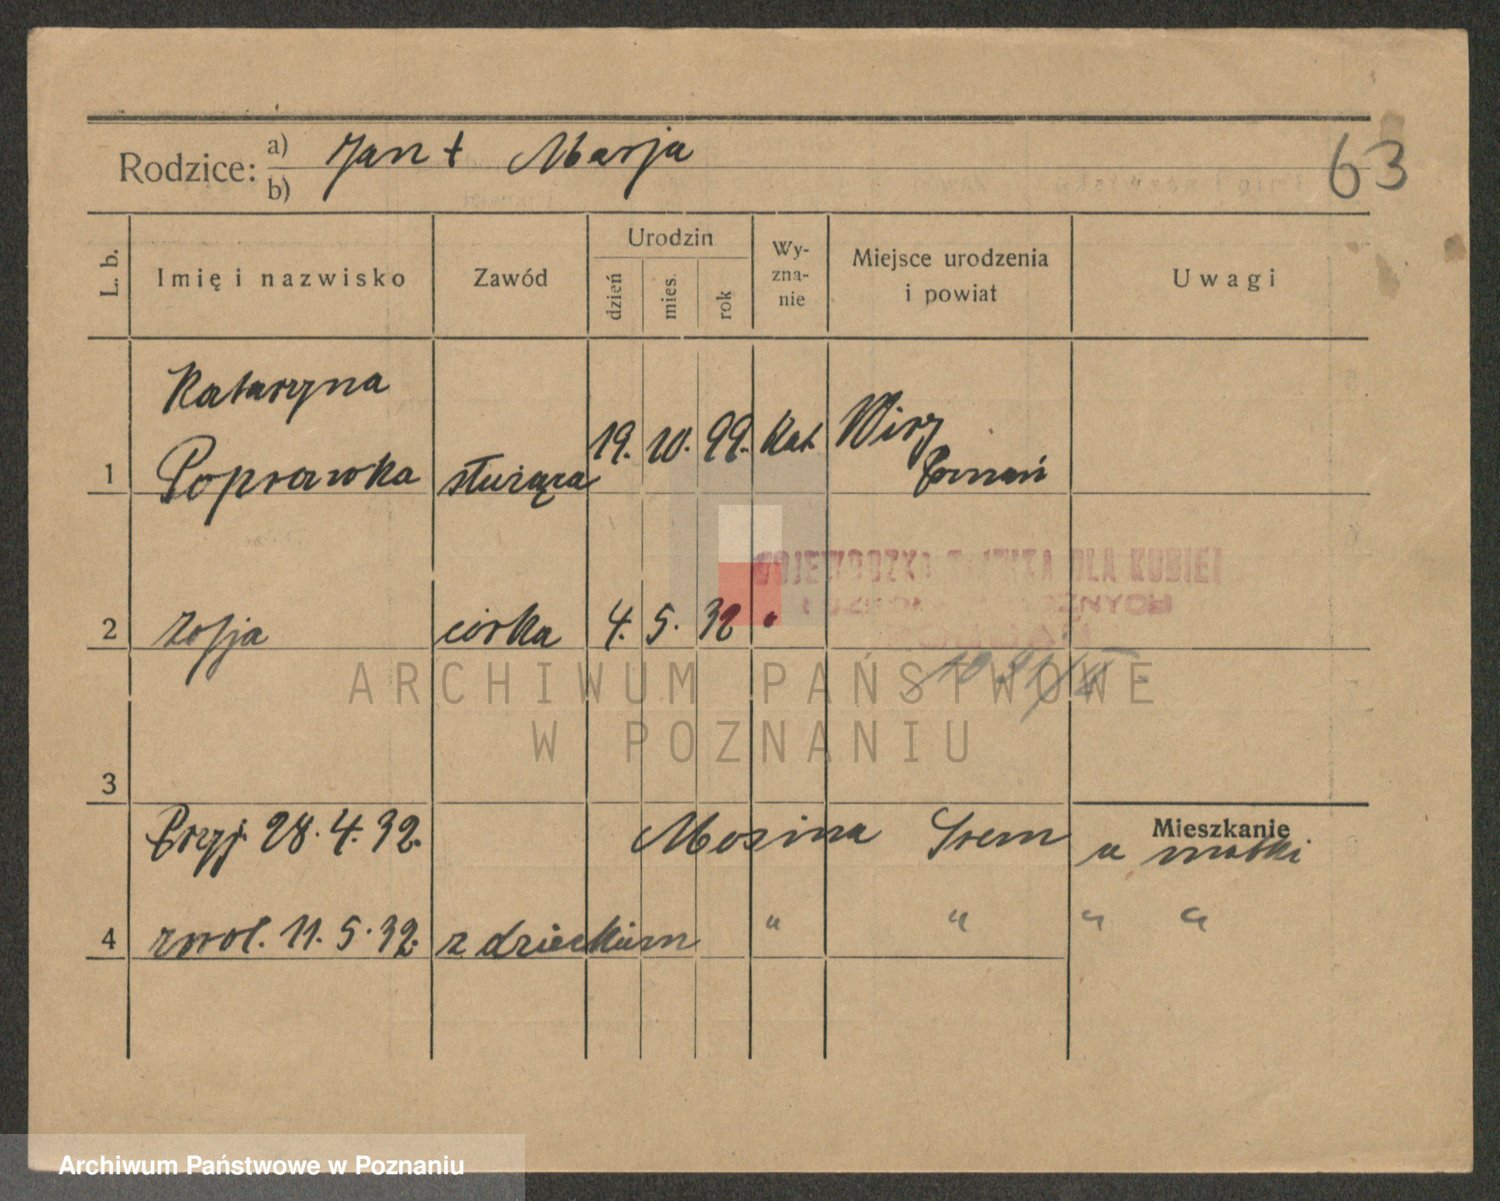 63
Rodzice: a) Jan † Marja
b)
L. b. Imię i nazwisko Zawód Urodzin dzień mies. rok Wy-zna-nie Miejsce urodzenia i powiat Uwagi
Kataryna
1 Poprawka służąca 19. 10. 99. kat. Wiry
Poznań
WOJEWÓDZKA DLA KOBIET
2 Zofja córka 4. 5. 32 "
ARCHIWUM PAŃSTWOWE
W POZNANIU
3
Przyj. 28. 4. 32. Mosina Śrem Mieszkanie
u matki
4 zwol. 11. 5. 32. z dzieckiem " " " "
Archiwum Państwowe w Poznaniu